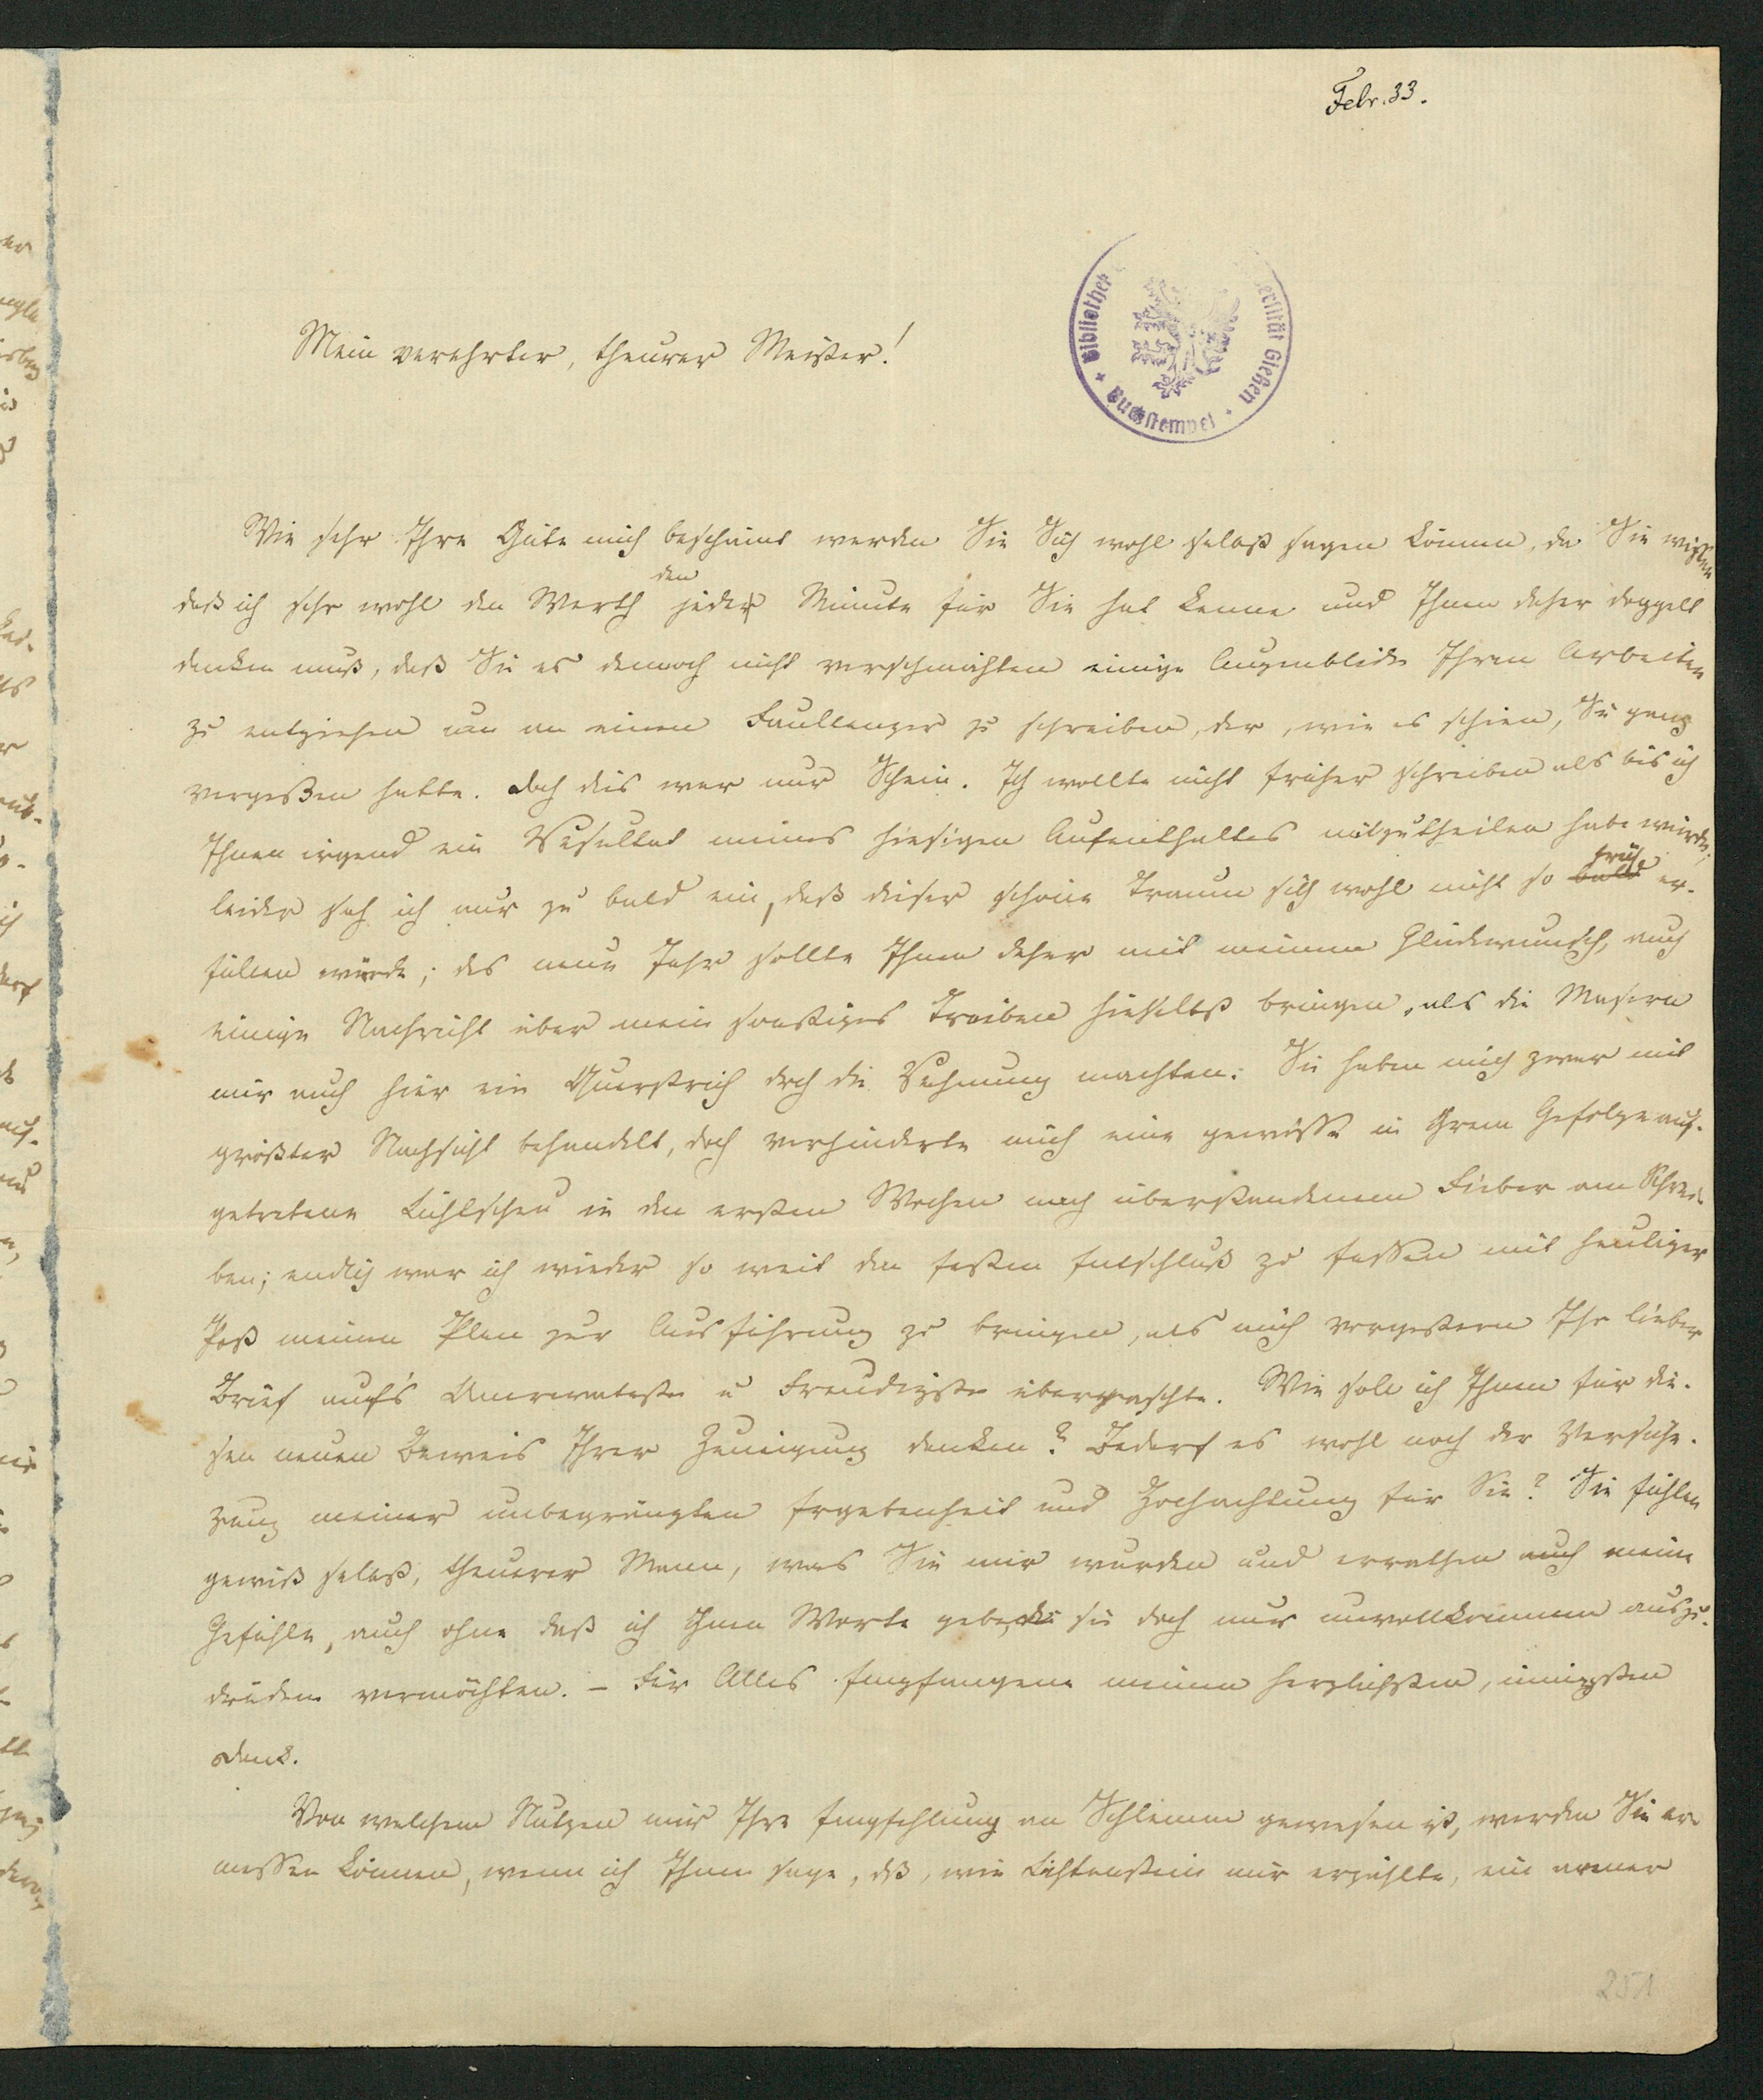 Febr. 33.
Bibliothek
ersität Gießen
Buchstempel
Mein verehrter, theurer Meister!
Wie sehr Ihre Güte mich beschämt werden Sie Sich wohl selbst sagen können, da Sie wissen
den
daß ich sehr wohl den Werth jeder Minute für Sie hat kenne und Ihnen daher doppelt
danken muß, daß Sie es dennoch nicht verschmähten einige Augenblicke Ihren Arbeiten
zu entziehen um an einen Faullenzer zu schreiben, der, wie es schien, Sie ganz
vergeßen hatte. Doch dies war nur Schein. Ich wollte nicht früher schreiben als bis ich
Ihnen irgend ein Resultat meines hiesigen Aufenthaltes mitzutheilen habe würde;
früh
leider sah ich nur zu bald ein, daß dieser schöne Traum sich wohl nicht so bald er-
füllen würde; das neue Jahr sollte Ihnen daher mit meinem Glückwunsch, auch
einige Nachricht über mein sonstiges Treiben hieselbst bringen, als die Masern
mir auch hier ein Querstrich dch die Rechnung machten. Sie haben mich zwar mit
größter Nachsicht behandelt, doch verhinderte mich eine gewisse in ihrem Gefolge auf-
getretene Lichtscheu in den ersten Wochen nach überstandenem Fieber am Schrei-
ben; endlich war ich wieder so weit den festen Entschluß zu fassen mit heutiger
Post meinen Plan zur Ausführung zu bringen, als mich vorgestern Ihr lieber
Brief auf's Unerwarteste u Freudigste überraschte. Wie soll ich Ihnen für die-
sen neuen Beweis Ihrer Zuneigung danken? Bedarf es wohl noch der Versiche-
rung meiner unbegränzten Ergebenheit und Hochachtung für Sie? Sie fühlen
gewiß selbst, theurer Mann, was Sie mir wurden und errathen auch meine
Gefühle, auch ohne daß ich ihnen Worte gebe, die sie doch nur unvollkommen auszu-
drücken vermöchten. – Für Alles Empfangene meinen herzlichsten, innigsten
Dank.
Von welchem Nutzen mir Ihre Empfehlung an Schlemm gewesen ist, werden Sie er-
messen können, wenn ich Ihnen sage, dß, wie Lichtenstein mir erzählte, ein armer
251